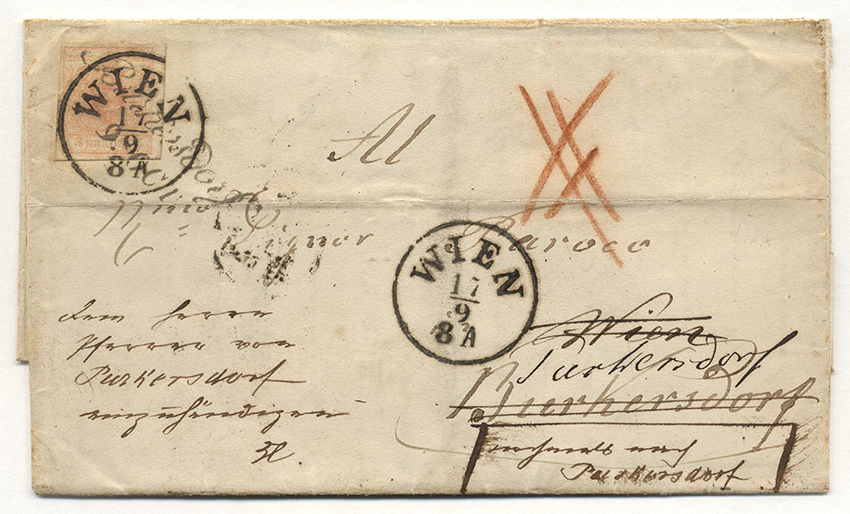 WIEN
17
9
8 A
Al
Signor Paroco
WIEN
17
9
8 A
Dem Herrn
Pfarrer von
Purkersdorf
einzuhändigen
Wien
Purkersdorf
Burkersdorf
nochmals nach
Purkersdorf